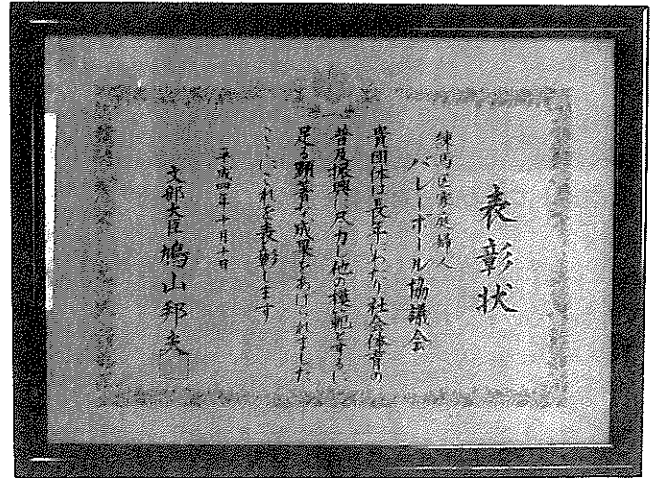 表彰状
練馬区家庭婦人
バレーボール協議会
貴団体は長年にわたり社会体育の
普及振興に尽力し他の模範とするに
足る顕著な成果をあげられました
ここにこれを表彰します
平成四年十月十日
文部大臣 鳩山邦夫